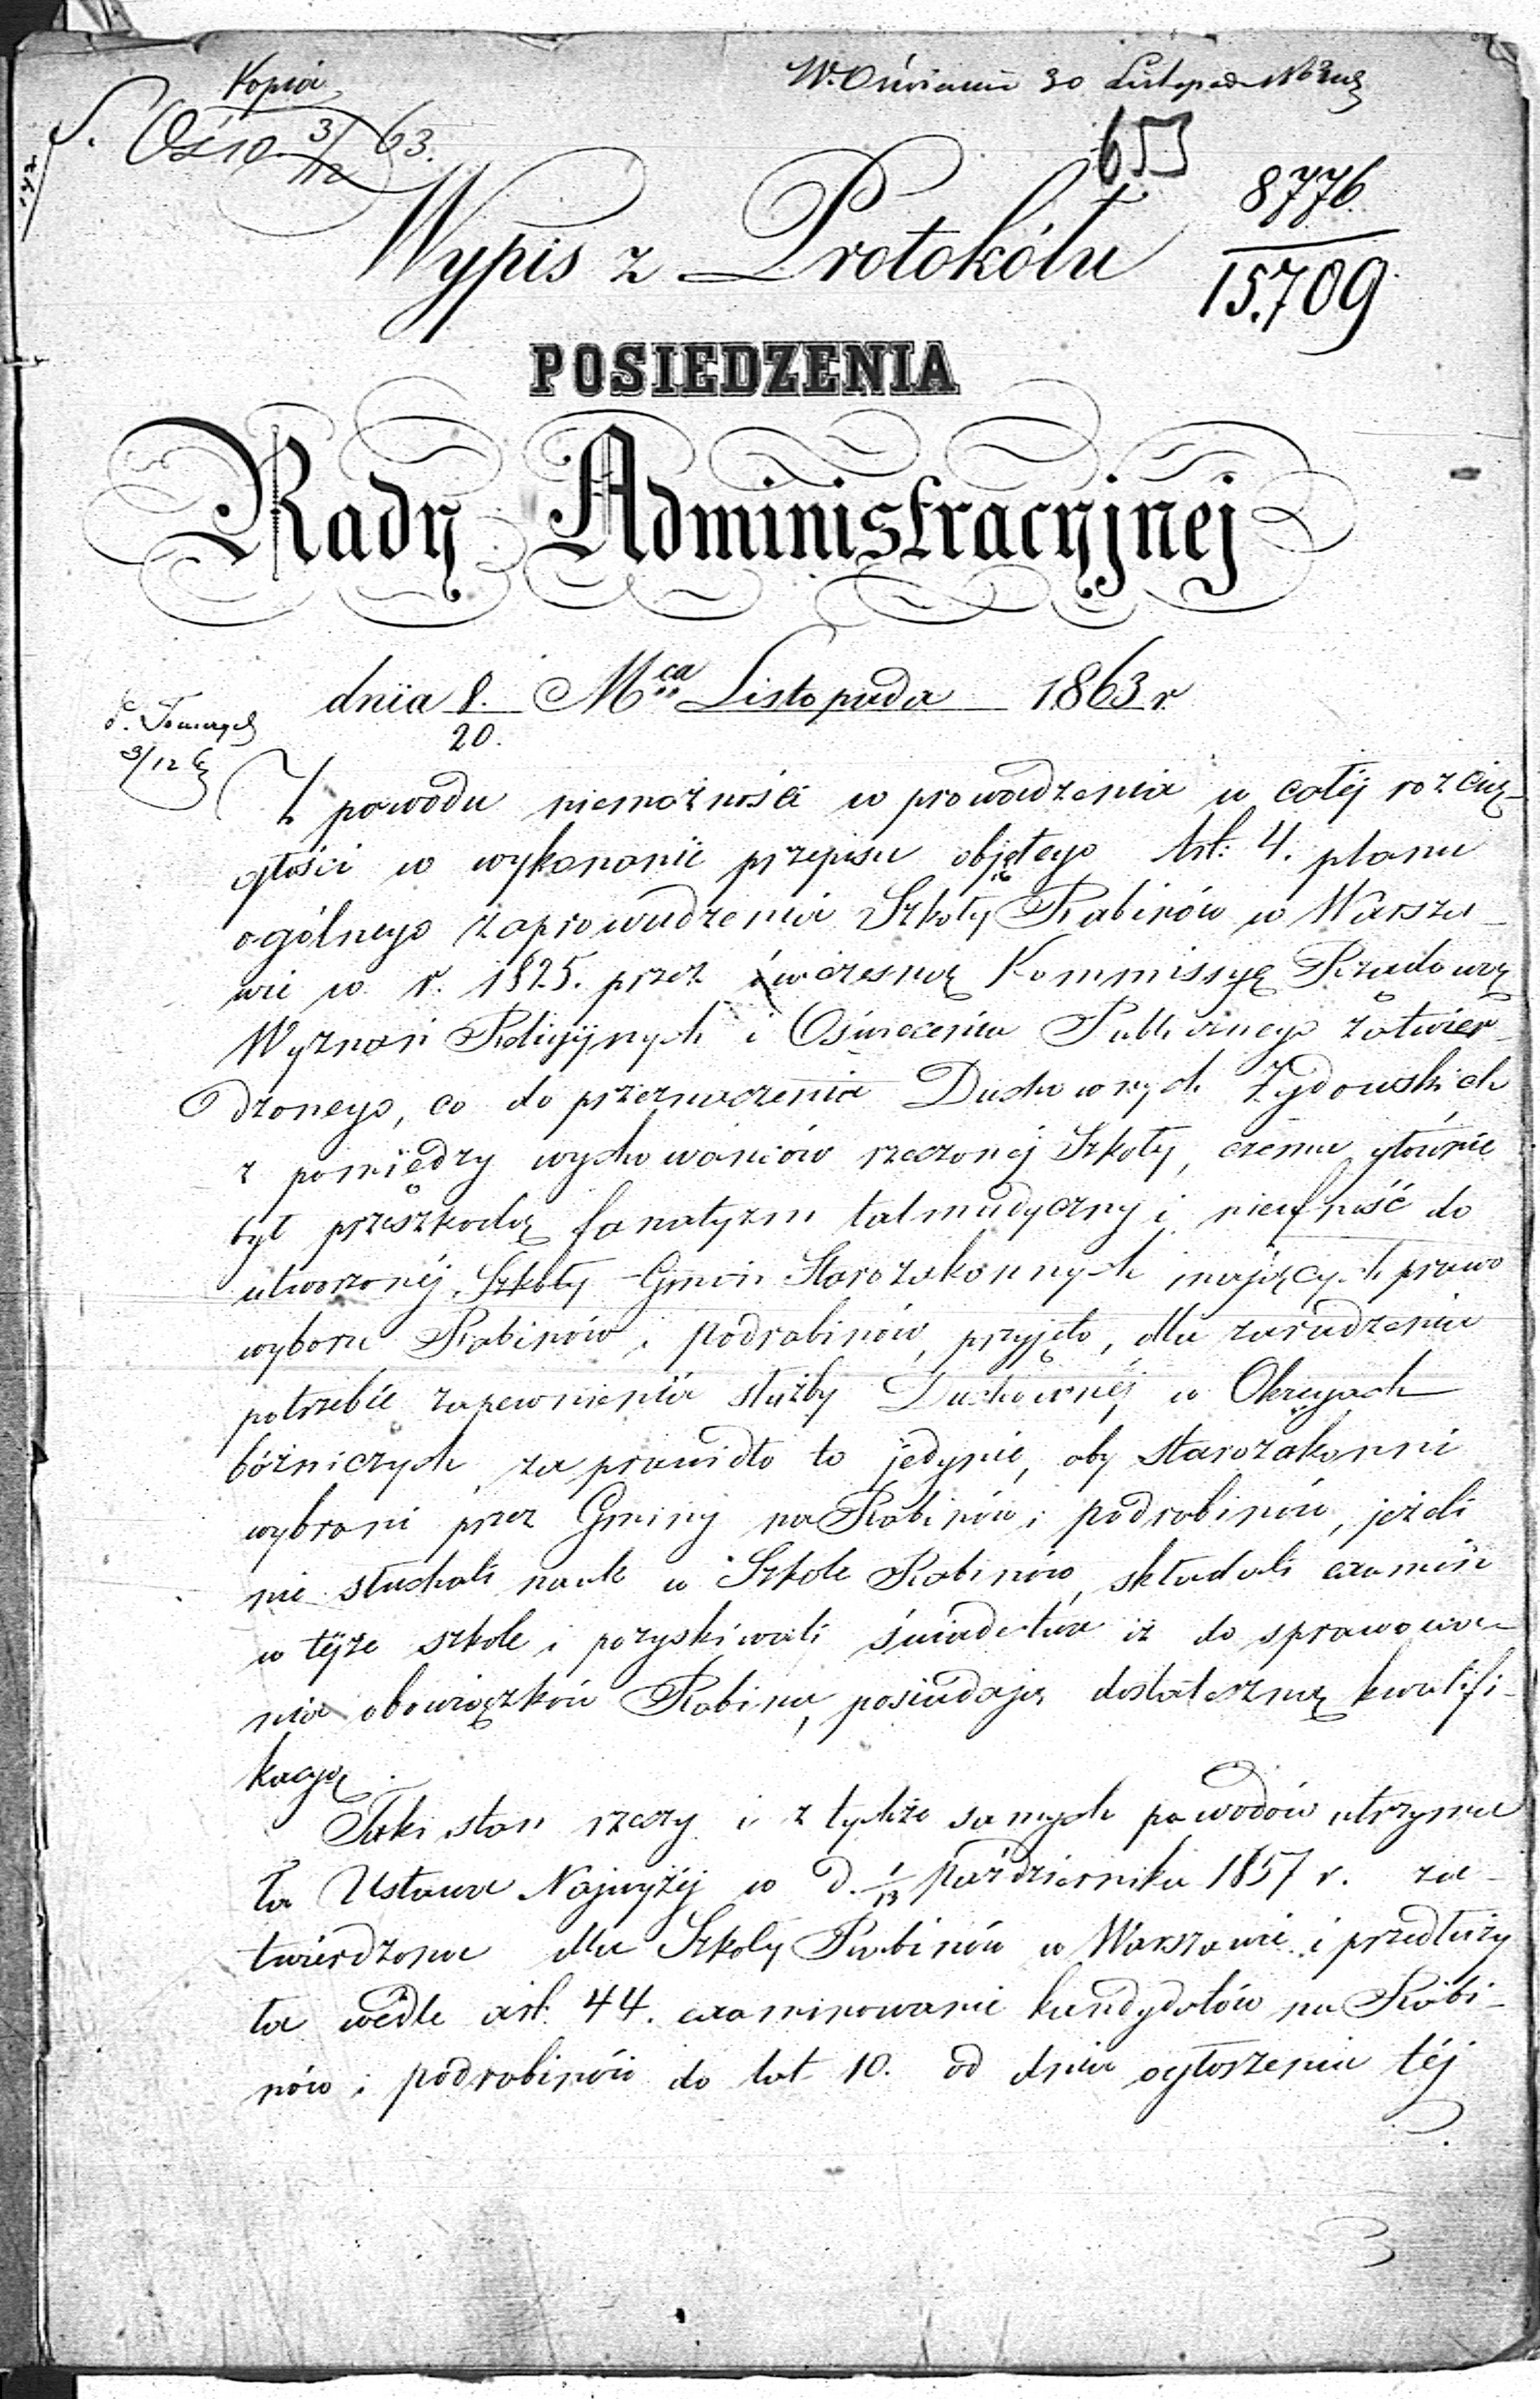 Kopia
W. Oświecenia 30 Listopada
Ośw. 3/12 63.
653
8776
15.709
Wypis z Protokółu
POSIEDZENIA
Rady Administracyjnej
dnia 8./20. Mca Listopada 1863 r
3/12
Z powodu niemożności w prowadzenia w całéj rozcią-
głości w wykonanie przepisu objętego Art: 4. planu
ogólnego zaprowadzenia Szkoły Rabinów w Warsza-
wie w r. 1825. przez ówczesną Kommissyę Rządową
Wyznań Religijnych i Oświecenia Publicznego zatwier-
dzonego, co do przeznaczenia Duchownych Żydowskich
z pomiędzy wychowańców rzeczonéj Szkoły, czemu głównie
był przeszkodą fanatyzm talmudyczny i nieufność do
utworzonéj Szkoły Gmin Starozakonnych mających prawo
wyboru Rabinów i Podrabinów, przyjęto, dla zaradzenia
potrzebie zapewnienia służby Duchownéj w Okręgach
bóżniczych, za prawidło to jedynie, aby starozakonni
wybrani przez Gminy na Rabinów i podrabinów, jeżeli
nie słuchali nauk w Szkole Rabinów, składali examin
w téjże szkole i pozyskiwali świadectwa iż do sprawowa-
nia obowiązków Rabina, posiadają dostateczną kwalifi-
kacyę.
Taki stan rzeczy i z tychże samych powodów utrzyma
ła Ustawa Najwyżéj w d. 1/13 Października 1857 r. za-
twierdzona dla Szkoły Rabinów w Warszawie i przedłuży
ła wedle art. 44. examinowanie kandydatów na Rabi-
nów i podrabinów do lat 10. od dnia ogłoszenia téj